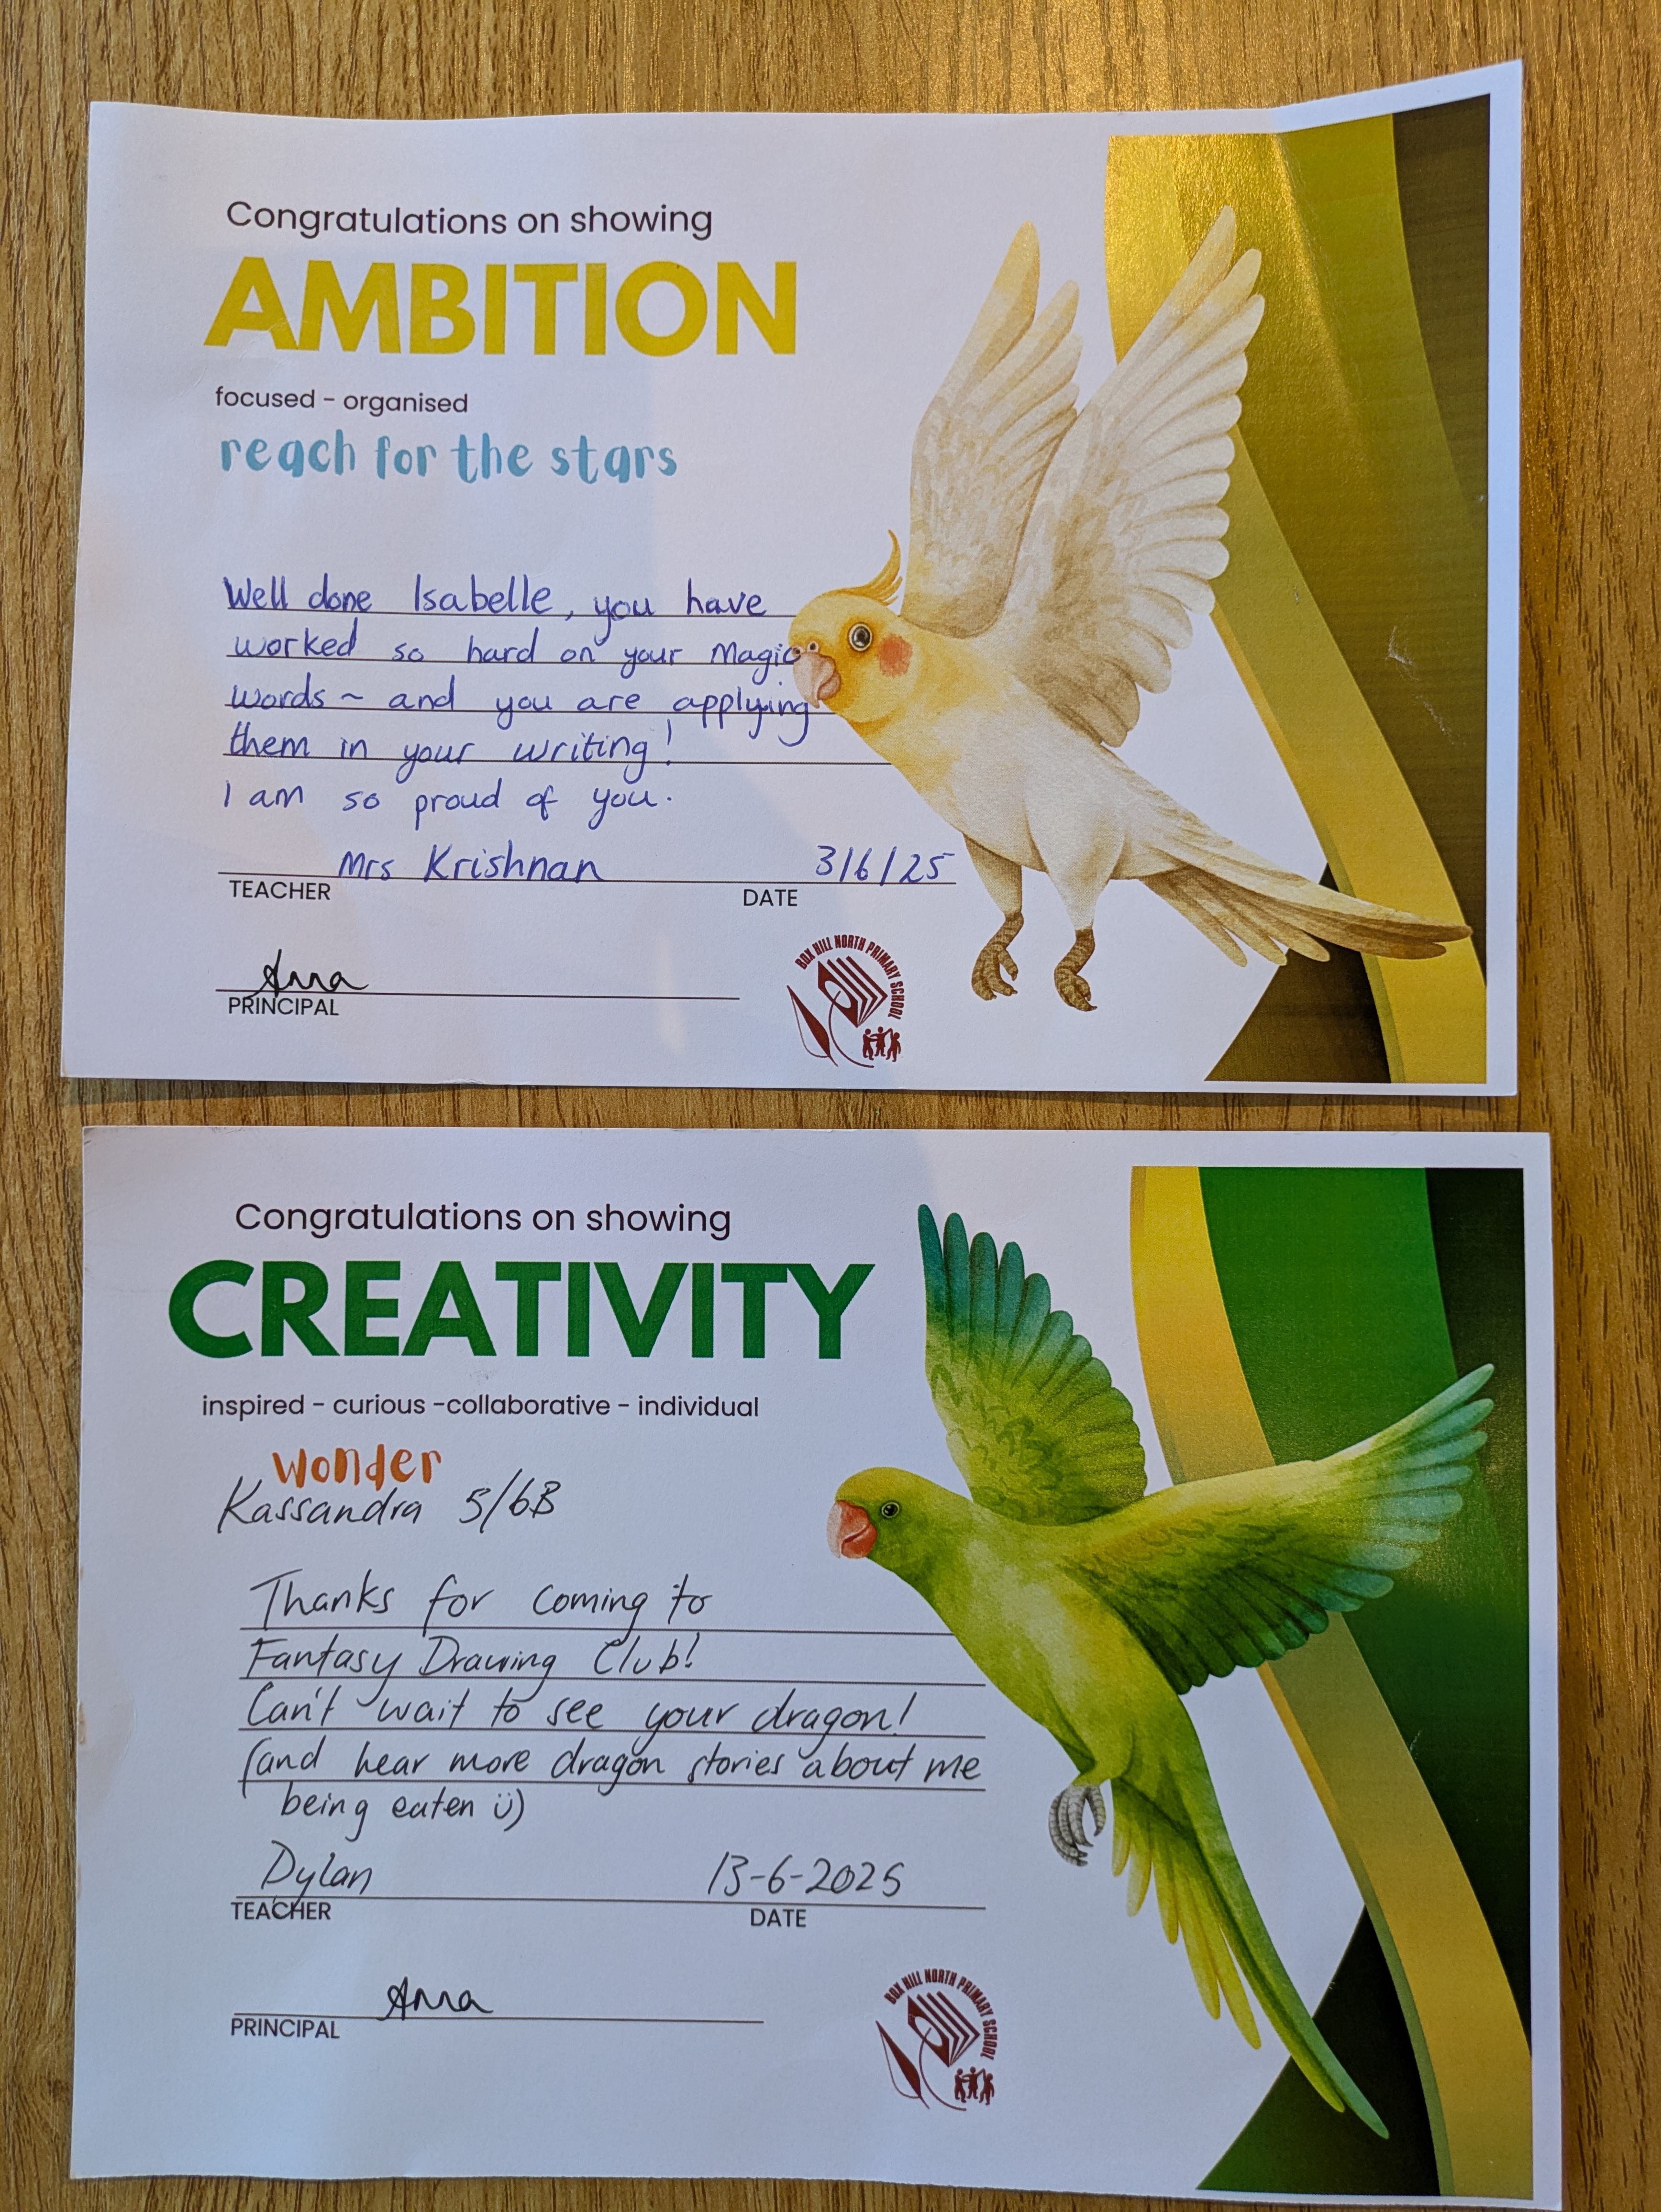 Congratulations on showing
AMBITION
focused - organised
reach for the stars
Well done Isabelle, you have
worked so hard on your Magic
words ~ and you are applying
them in your writing!
I am so proud of you.
Mrs Krishnan 3/6/25
TEACHER DATE
Anna
PRINCIPAL
BOX HILL NORTH PRIMARY SCHOOL
Congratulations on showing
CREATIVITY
inspired - curious -collaborative - individual
wonder
Kassandra 5/6B
Thanks for coming to
Fantasy Drawing Club!
Can't wait to see your dragon!
(and hear more dragon stories about me
being eaten ü)
Dylan 13-6-2025
TEACHER DATE
Anna
PRINCIPAL
BOX HILL NORTH PRIMARY SCHOOL